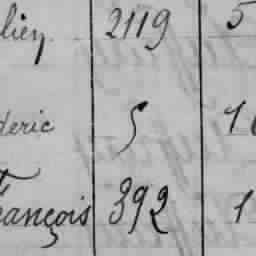 lien 2119 5
deric 5 1
François 392 1